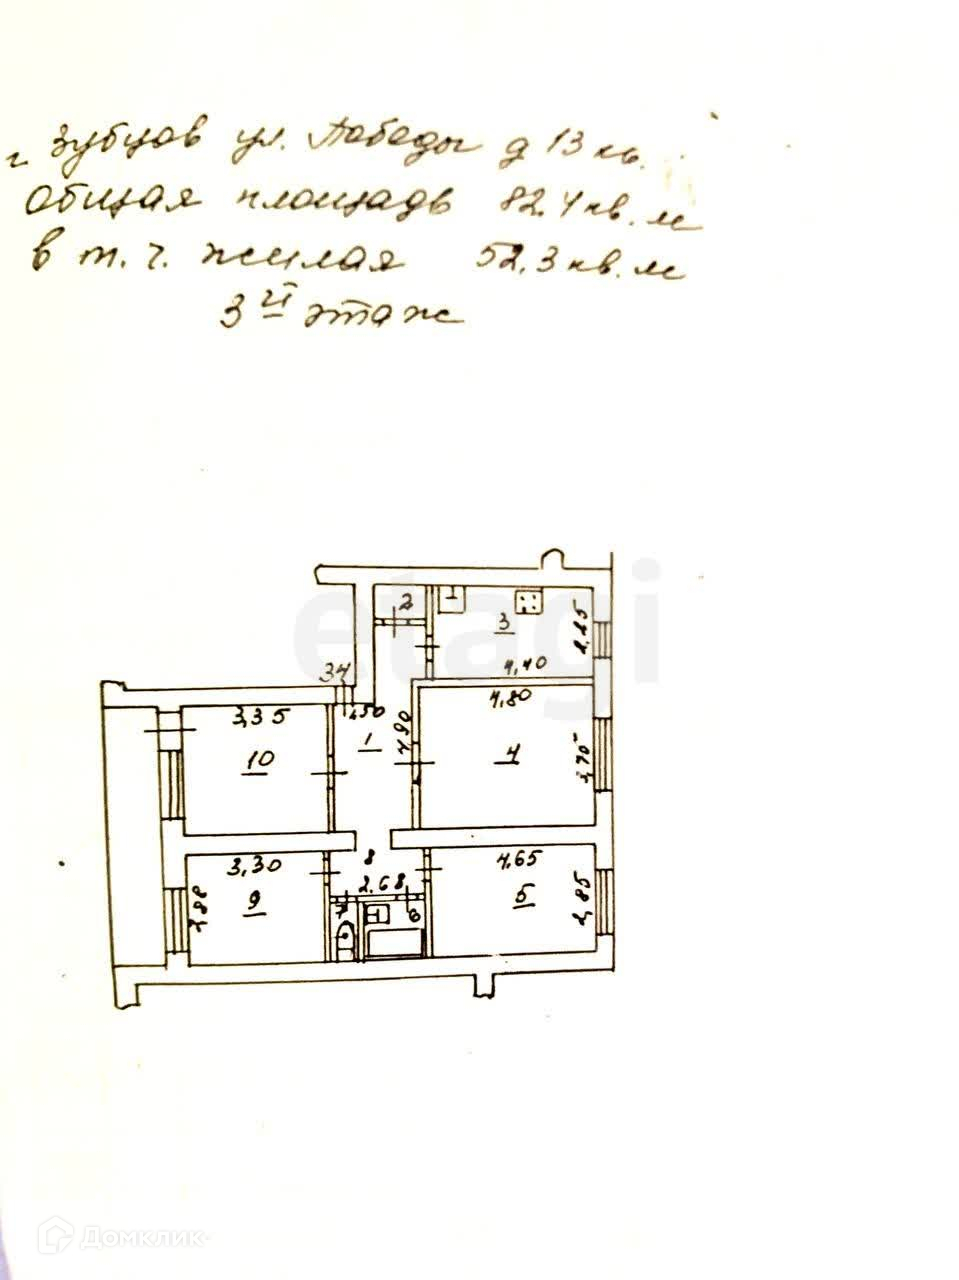 г. Зубцов ул. Победы д 13 кв.
Общая площадь 82.4 кв. м
в т. ч. жилая 52.3 кв. м
3 й этаж
etagi
2
3
4,40
34
3,35
4,80
1
10
4
3,70
3,30
8
4,65
2.68
9
7
6
5
2,85
Домклик